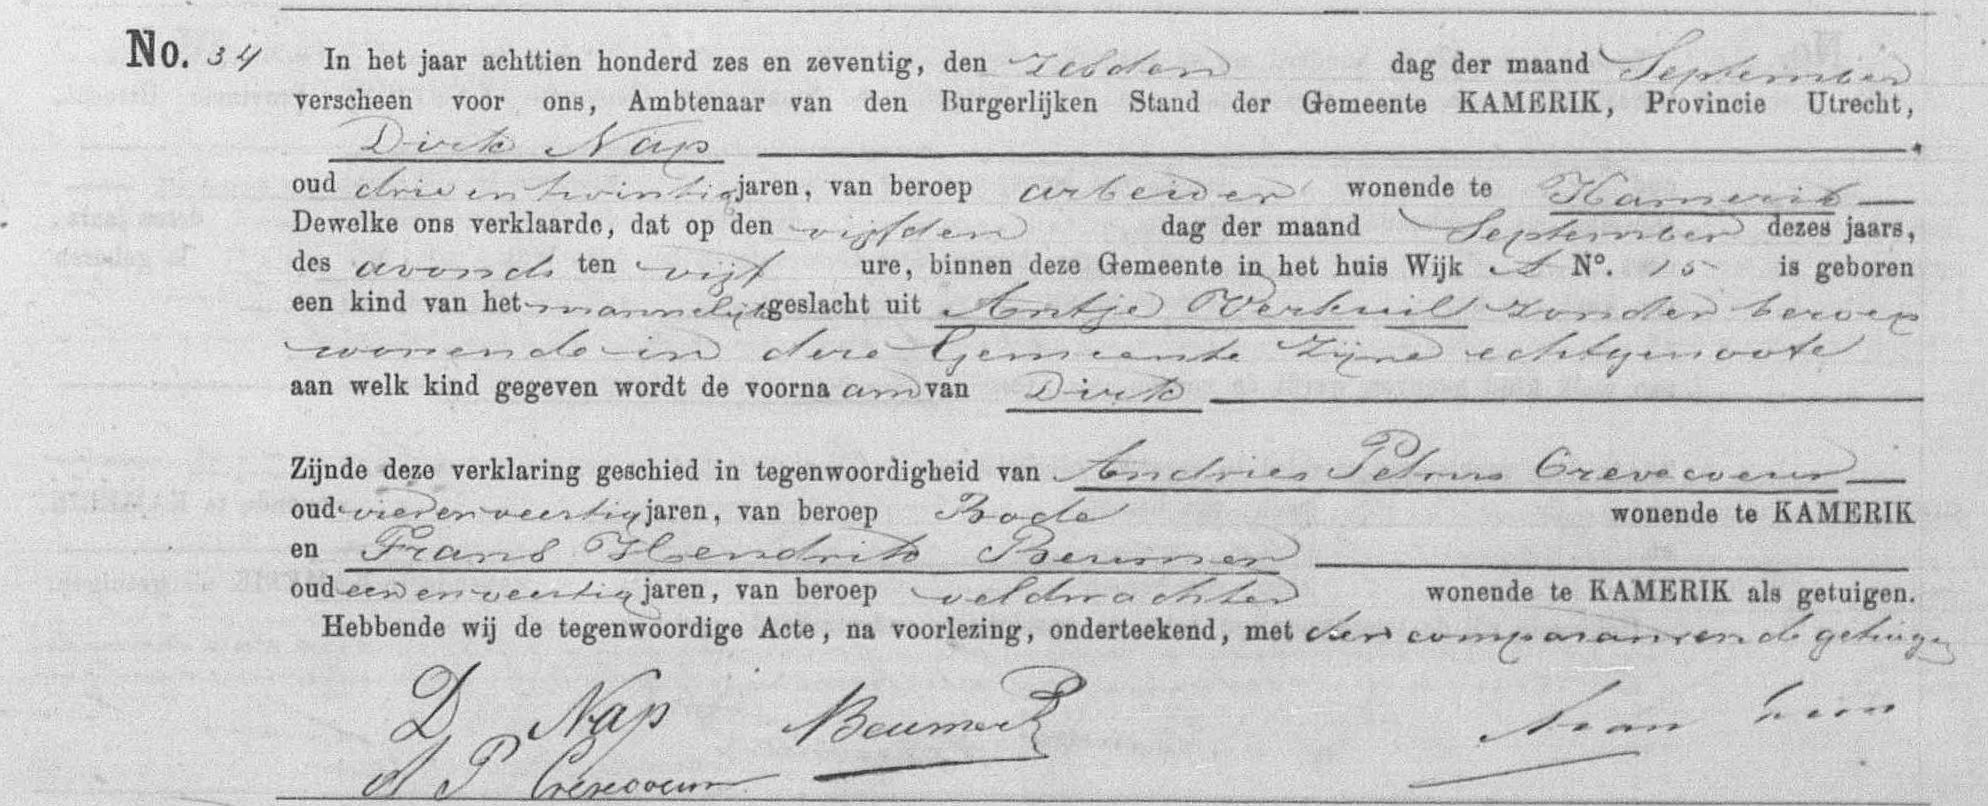 No. 34 In het jaar achttien honderd zes en zeventig, den zesden dag der maand September
verscheen voor ons, Ambtenaar van den Burgerlijken Stand der Gemeente KAMERIK, Provincie Utrecht,
Dirk Nap
oud drie en twintig jaren, van beroep arbeider wonende te Kamerik
Dewelke ons verklaarde, dat op den vijfden dag der maand September dezes jaars,
des avonds ten vijf ure, binnen deze Gemeente in het huis Wijk A No. 15 is geboren
een kind van het mannelijk geslacht uit Antje Verkuil zonder beroep
wonende in deze Gemeente zijne echtgenoote
aan welk kind gegeven wordt de voornaam van Dirk
Zijnde deze verklaring geschied in tegenwoordigheid van Andries Petrus Crevecoeur
oud vier en veertig jaren, van beroep Bode wonende te KAMERIK
en Frans Hendrik Beumer
oud een en veertig jaren, van beroep veldwachter wonende te KAMERIK als getuigen.
Hebbende wij de tegenwoordige Acte, na voorlezing, onderteekend, met den comparant en de getuigen
D Nap Beumer
A P Crevecoeur